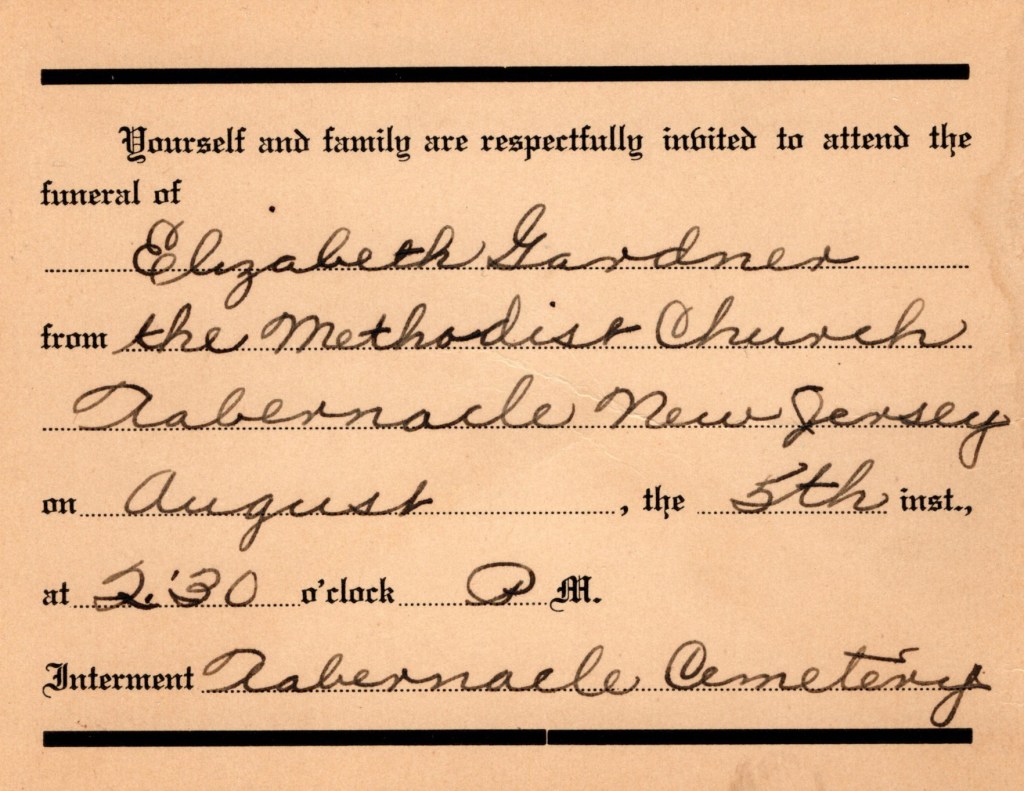 Yourself and family are respectfully invited to attend the
funeral of
Elizabeth Gardner
from the Methodist Church
Tabernacle New Jersey
on August, the 5th inst.,
at 2:30 o'clock P M.
Interment Tabernacle Cemetery